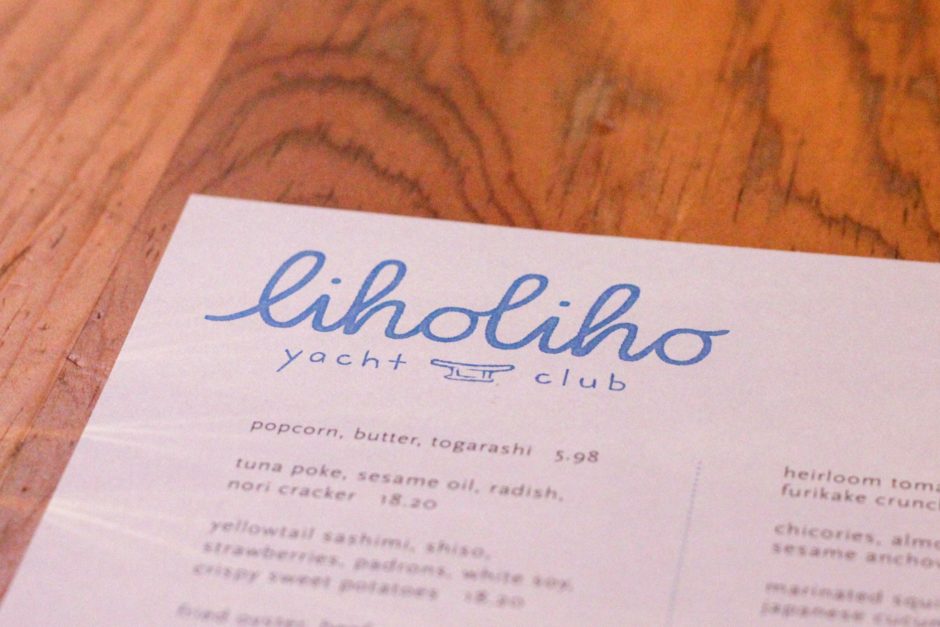 liholiho
yacht club
popcorn, butter, togarashi 5.98
tuna poke, sesame oil, radish,
nori cracker 18.20
yellowtail sashimi, shiso,
strawberries, padrons, white soy,
crispy sweet potatoes 18.20
fried oyster, beef
heirloom toma
furikake crunch
chicories, almo
sesame anchov
marinated squi
japanese cucu